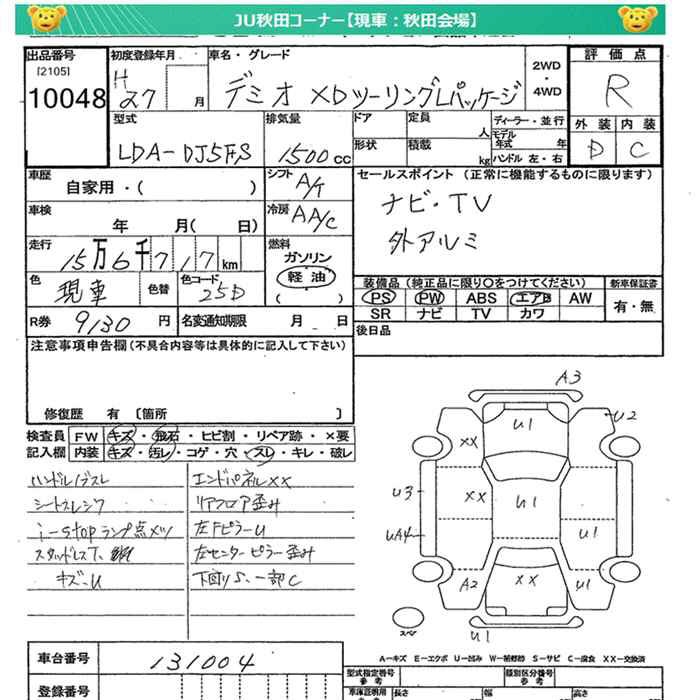 JU秋田コーナー【現車：秋田会場】
出品番号 初度登録年月 車名・グレード 2WD・4WD 評価点
[2105]
10048 H27 月 デミオ XDツーリングLパッケージ R
型式 排気量 ドア 定員 人 ディーラー・並行 外装 内装
LDA-DJ5FS 1500cc 形状 積載 kg モデル年式 年 ハンドル 左・右 D C
車歴 自家用・( ) シフト A/T セールスポイント (正常に機能するものに限ります)
車検 年 月( 日) 冷房 AA/C ナビ・TV
走行 15万6千717km 燃料 ガソリン 外アルミ
軽油
( )
色 現車 色替 色コード 25D 装備品 (純正品に限り○をつけてください) 新車保証書
PS PW ABS エアB AW 有・無
R券 9130円 名変通知期限 月 日 SR ナビ TV カワ
注意事項申告欄(不具合内容等は具体的に記入して下さい) 後日品
修復歴 有 〔箇所 〕
検査員 FW キズ・飛石・ヒビ割・リペア跡・×要
記入欄 内装 キズ・汚レ・コゲ・穴・スレ・キレ・破レ
ハンドル スレ エンドパネルXX
シートスレ シワ リアフロア歪み
i-stopランプ点メツ 左FピラーU
スタッドレスT. 左センターピラー歪み
キズ.U 下回りS.一部C
A3
U1
U2
XX
U3
XX
U1
UA4
U1
A2
XX
U1
スペア
U1
A-キズ E-エクボ U-凹み W-補修跡 S-サビ C-腐食 XX-交換済
車台番号 131004 型式指定番号 参考 類別区分番号 参考
登録番号 車庫証明用 参考 長さ 幅 高さ